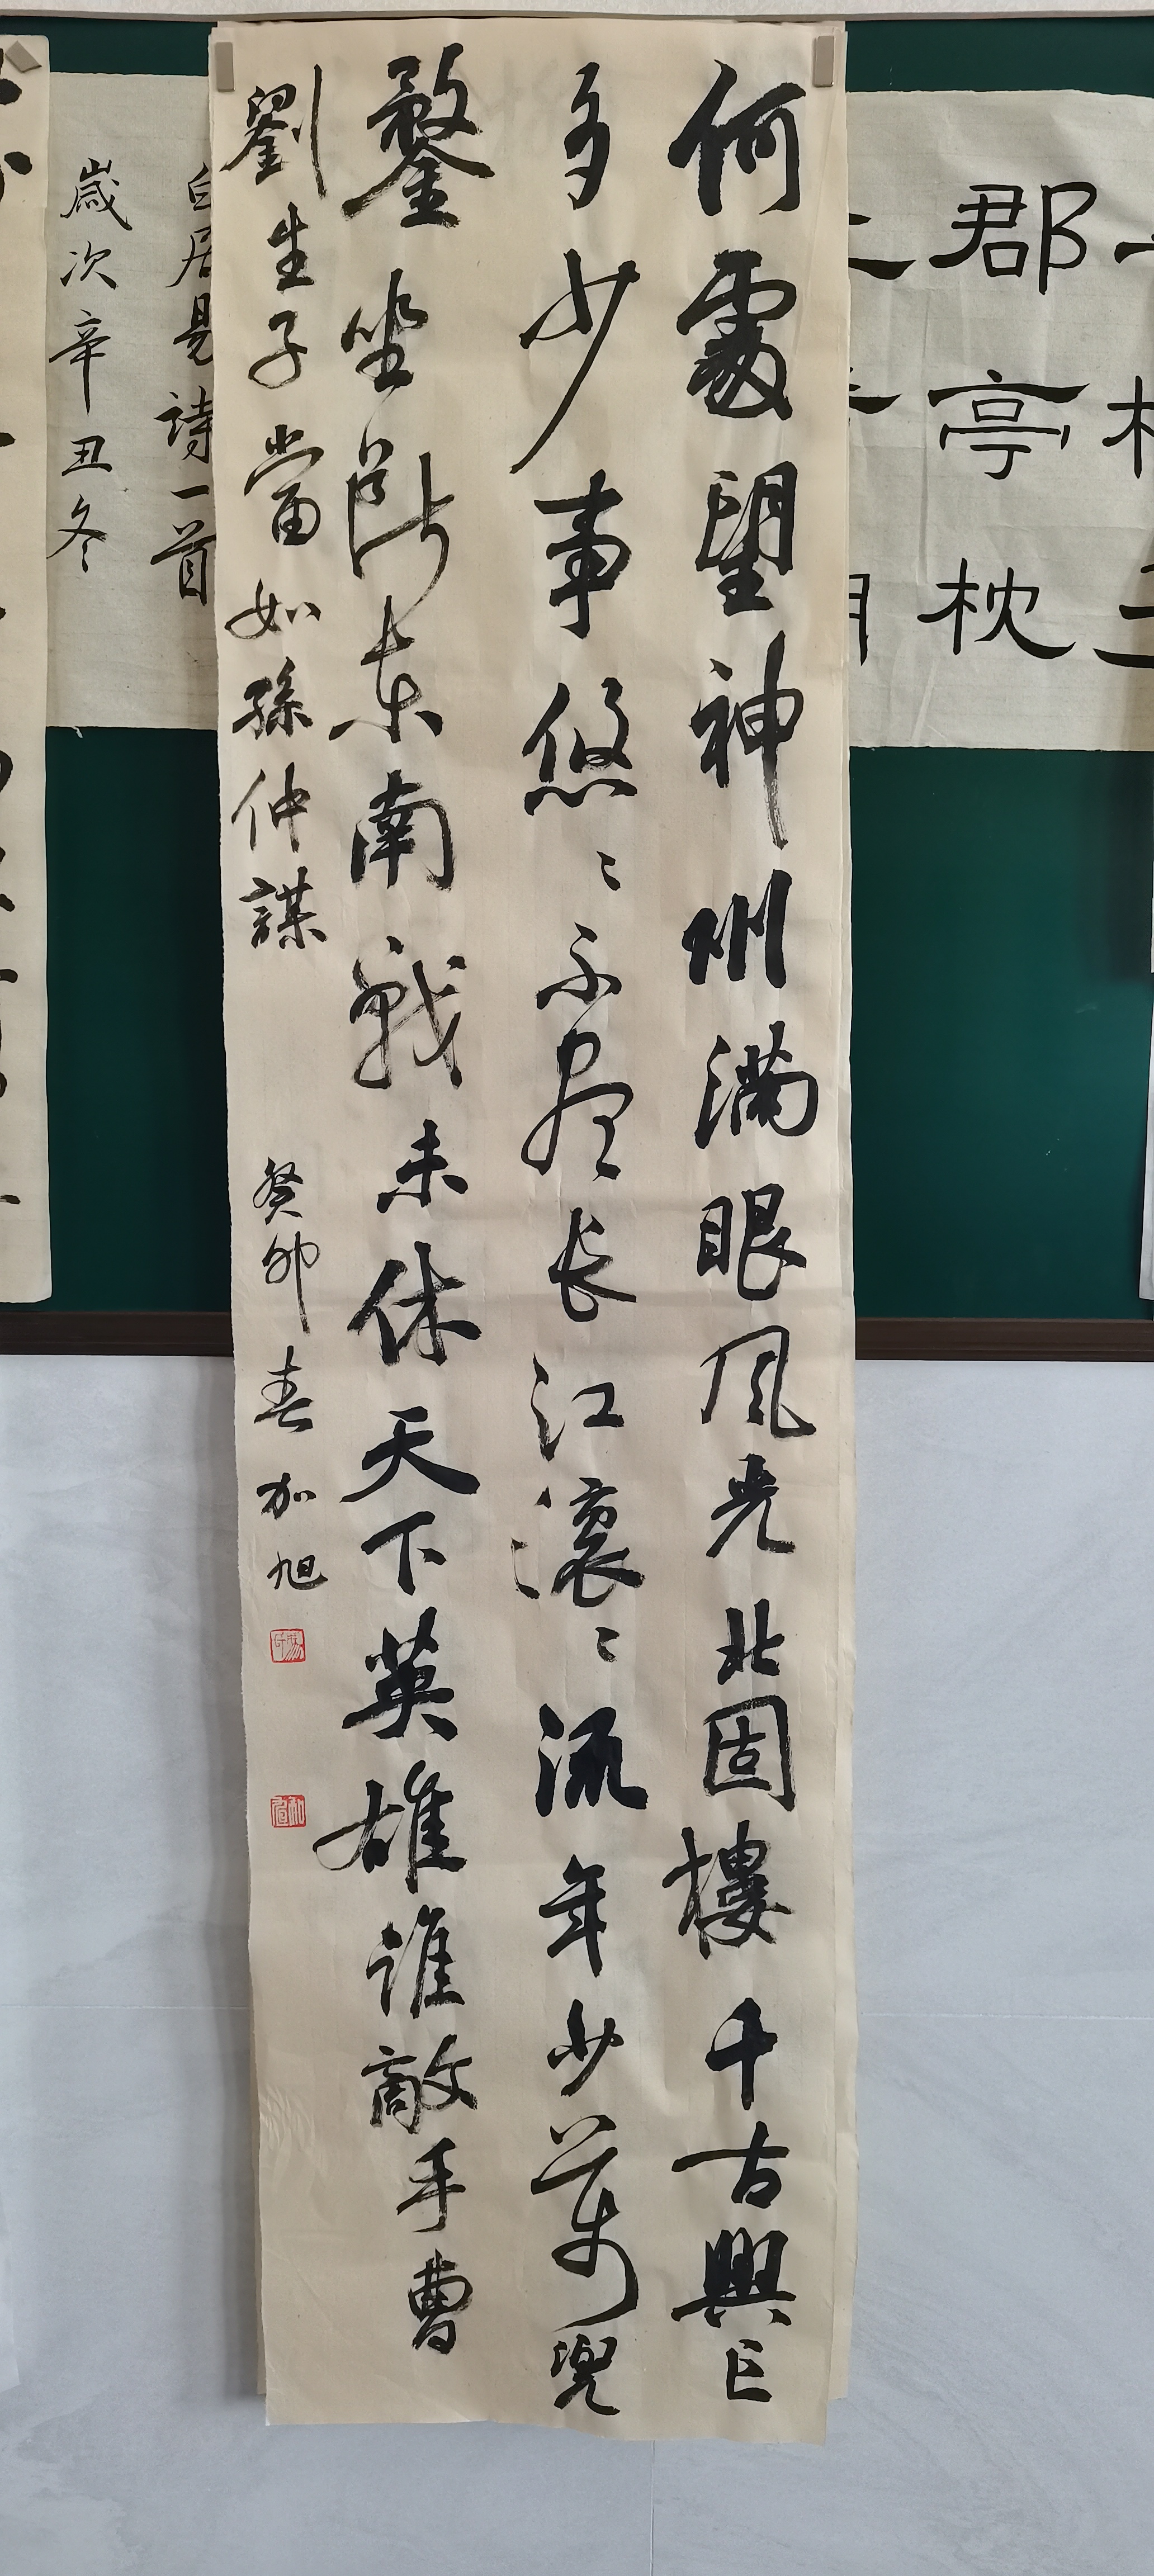 何處望神州滿眼風光北固樓千古興亡
多少事悠〻不盡长江滾〻流年少萬兜
鍪坐斷东南戰未休天下英雄誰敵手曹
劉生子當如孫仲謀 癸卯春 加旭
郡亭枕
白居易詩一首
歲次辛丑冬